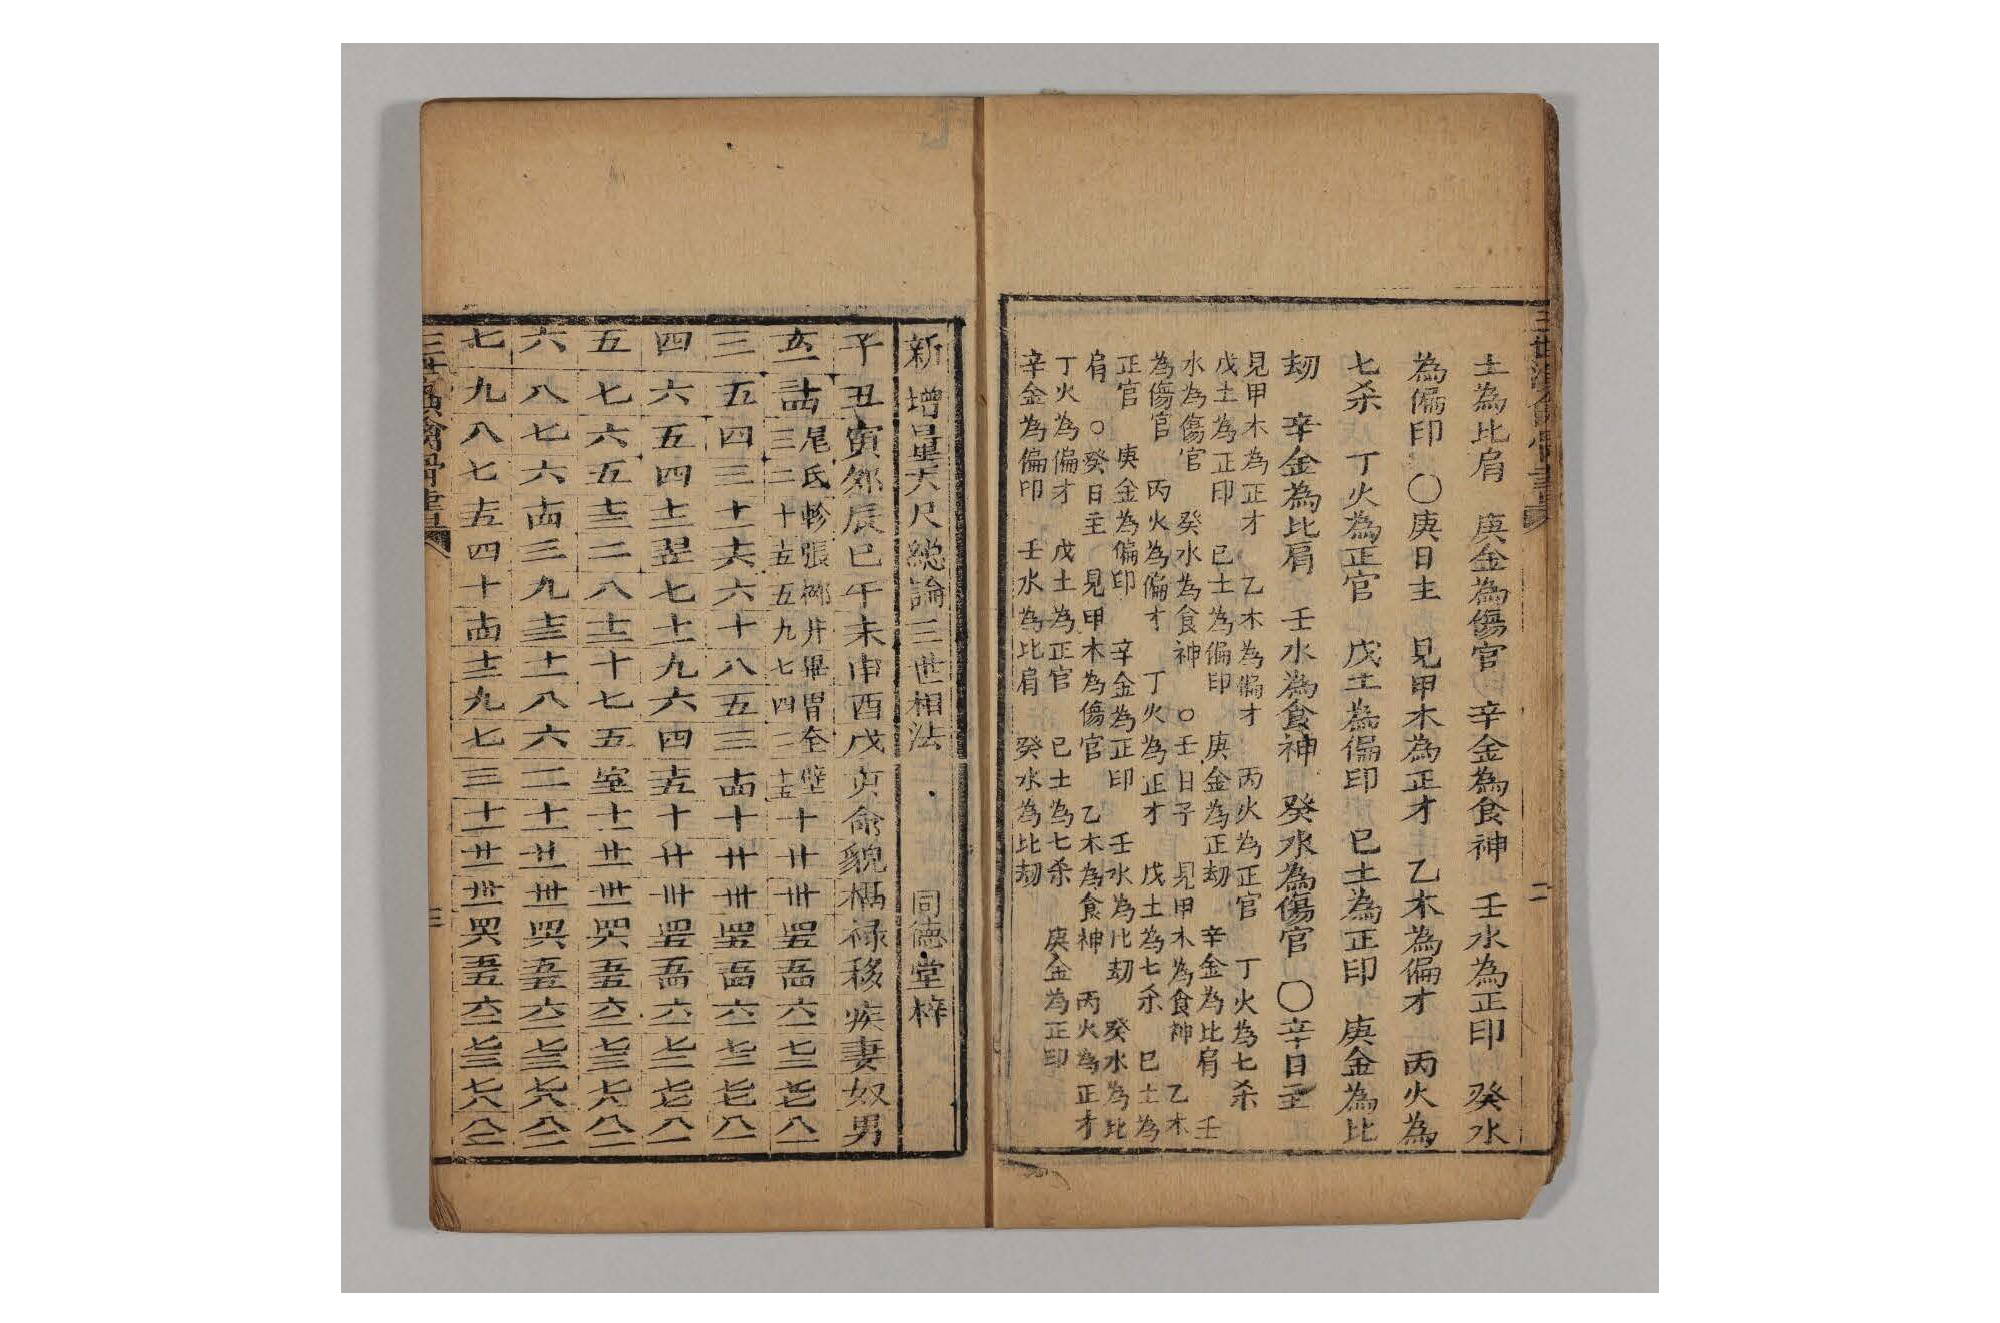 土為比肩 庚金為傷官 辛金為食神 壬水為正印 癸水
為偏印 ○庚日主 見甲木為正才 乙木為偏才 丙火為
七杀 丁火為正官 戊土為偏印 巳土為正印 庚金為比
刼 辛金為比肩 壬水為食神 癸水為傷官 ○辛日主
見甲木為正才 乙木為偏才 丙火為正官 丁火為七杀
戊土為正印 已土為偏印 庚金為正刼 辛金為比肩 壬
水為傷官 癸水為食神 ○壬日子 見甲木為食神 乙木
為傷官 丙火為偏才 丁火為正才 戊土為七杀 巳土為
正官 庚金為偏印 辛金為正印 壬水為比刼 癸水為比
肩 ○癸日主 見甲木為傷官 乙木為食神 丙火為正才
丁火為偏才 戊土為正官 巳土為七杀 庚金為正印
辛金為偏印 壬水為比肩 癸水為比刼
二
新增量天尺總論三世相法 同德堂梓
子丑寅卯辰巳午未申酉戌亥命貌福祿移疾妻奴男
尾氐軫張柳井畢胃奎壁
三二十五五九七四二十五十廿卅
三五四三十一六六十八五三十四十廿卅四五五四六一七二七七八一
四六五四十二翌七十二九六四十五十廿卅四五五四六一七二七七八一
五七六五十三二八十三十七五室十一廿一卅一四六五五六一七三七八八一
六八七六十四三九十三十一八六二十一廿一卅一四六五五六一七三七八八二
七九八七十五四十十四十三九七三十一廿一卅一四六五五六一七三七八八二
三